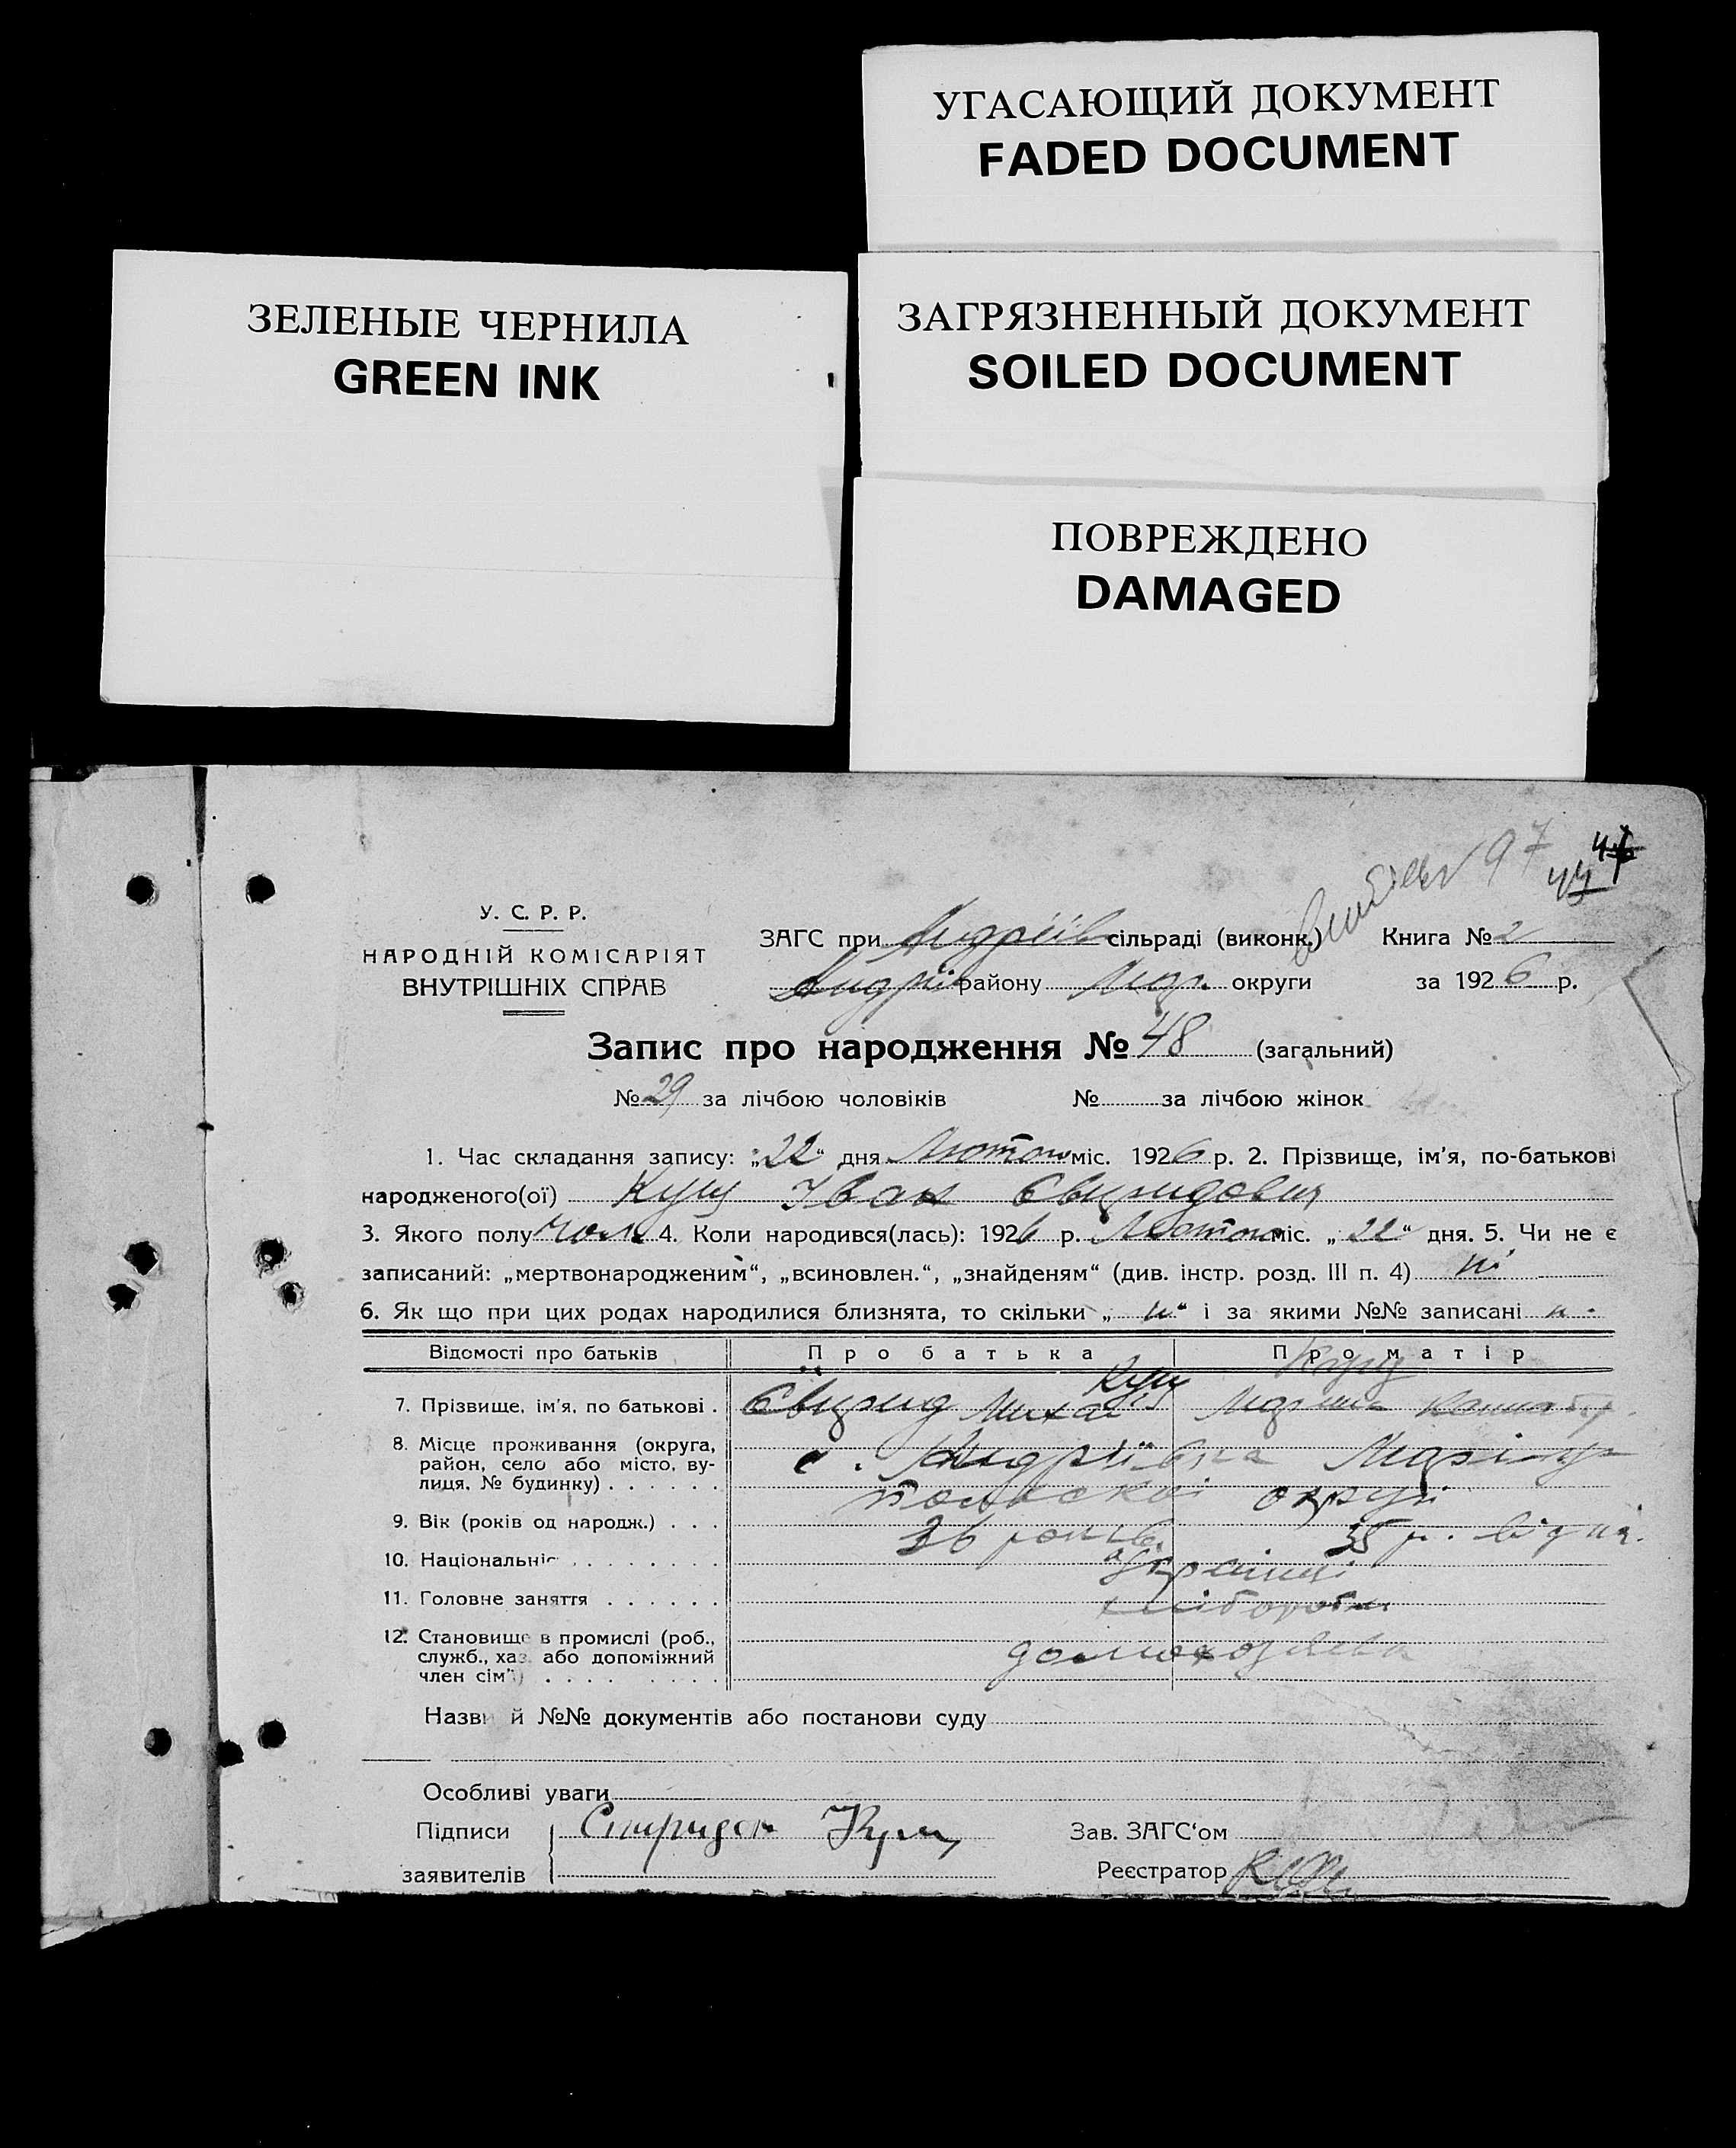 УГАСАЮЩИЙ ДОКУМЕНТ
FADED DOCUMENT
ЗЕЛЕНЫЕ ЧЕРНИЛА
GREEN INK
ЗАГРЯЗНЕННЫЙ ДОКУМЕНТ
SOILED DOCUMENT
ПОВРЕЖДЕНО
DAMAGED
97
У. С. Р. Р.
НАРОДНІЙ КОМІСАРІЯТ
ВНУТРІШНІХ СПРАВ
ЗАГС при Андріїв сільраді (виконк.) Книга № 2
Андрії району Мар. округи за 1926 р.
Запис про народження № 48 (загальний)
№ 29 за лічбою чоловіків № за лічбою жінок
1. Час складання запису: „22“ дня Лютого міс. 1926 р. 2. Прізвище, ім'я, по-батькові
народженого(ої) Кущ Іван
3. Якого полу чол. 4. Коли народився(лась): 1926 р. Лютого міс. „22“ дня. 5. Чи не є
записаний: „мертвонародженим“, „всиновлен.“, „знайденям“ (див. інстр. розд. III п. 4) ні
6. Як що при цих родах народилися близнята, то скільки „н“ і за якими №№ записані н -
Відомості про батьків Про батька Про матір
Кущ Кущ
7. Прізвище, ім'я, по батькові . Михай
8. Місце проживання (округа, район, село або місто, вулиця, № будинку) . . . . . . с. Андріївка Маріюпольської округи
9. Вік (років од народж.) . . . 36 років 35 р.
10. Національніс . . . . . . . . Українці
11. Головне заняття . . . . . . хлібороби
12. Становище в промислі (роб., служб., хаз. або допоміжний член сім'ї) . . . .
Назви й №№ документів або постанови суду
Особливі уваги
Підписи Спиридон Кущ Зав. ЗАГС'ом
заявителів Реєстратор